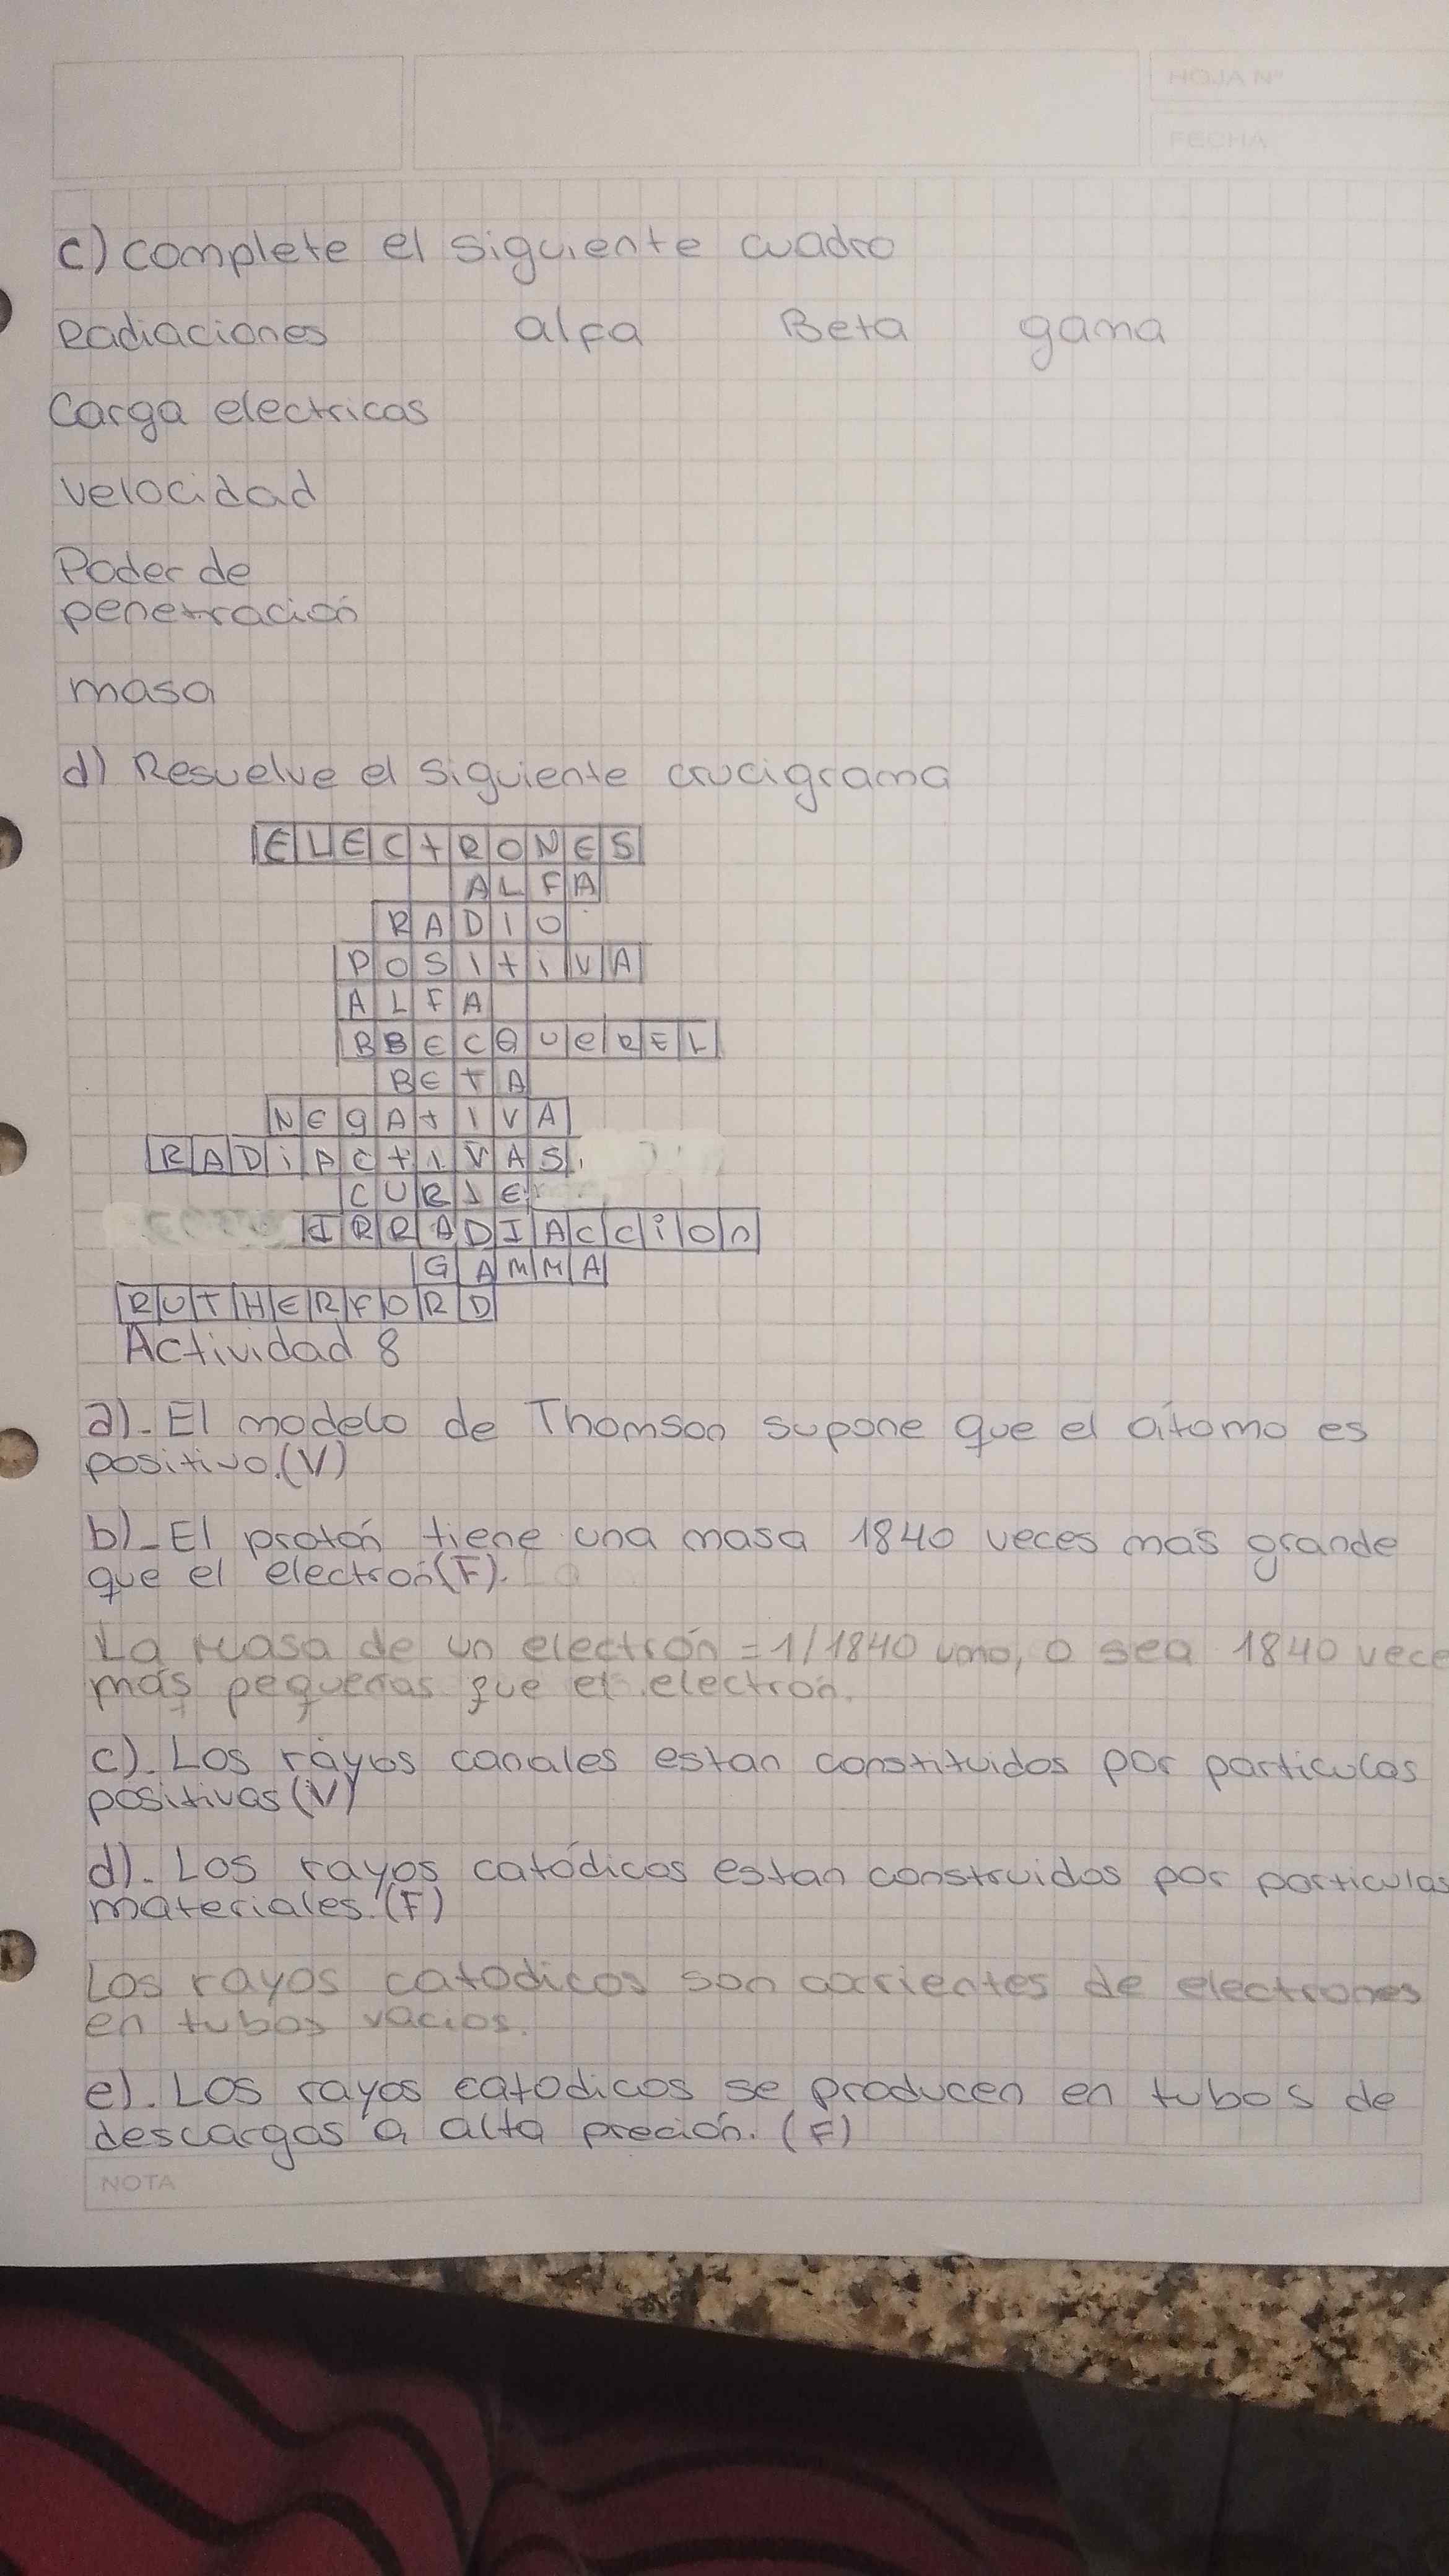 HOJA Nº
FECHA
c) complete el siguiente cuadro
Radiaciones alfa Beta gama
Carga electricas
velocidad
Poder de
penetración
masa
d) Resuelve el siguiente crucigrama
ELECtRONES
ALFA
RADIO
POSItiVA
ALFA
BBECQUeREL
BETA
NEgAtIVA
RADiACtIVAS
CURIE
IRRADIACCiOn
GAMMA
RUTHERFORD
Actividad 8
a).- El modelo de Thomson supone que el átomo es
positivo.(V)
b).- El protón tiene una masa 1840 veces más grande
que el electrón(F). La
La masa de un electrón = 1/1840 umo, o sea 1840 vece
más pequeñas que el electrón.
c). Los rayos canales estan constituidos por particulas
positivas (V)
d). Los rayos catódicos estan construidos por particulas
materiales. (F)
Los rayos catodicos son corrientes de electrones
en tubos vacios.
e). Los rayos catodicos se producen en tubos de
descargas a alta preción. (F)
NOTA